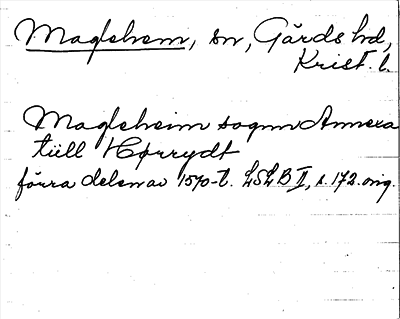 Maglehem, sn, Gärds hd,
Krist. l.
Magleheim sogun Annexa
tüll Hørrydt
förra delen av 1570-t. LSLB II, s. 172. orig.